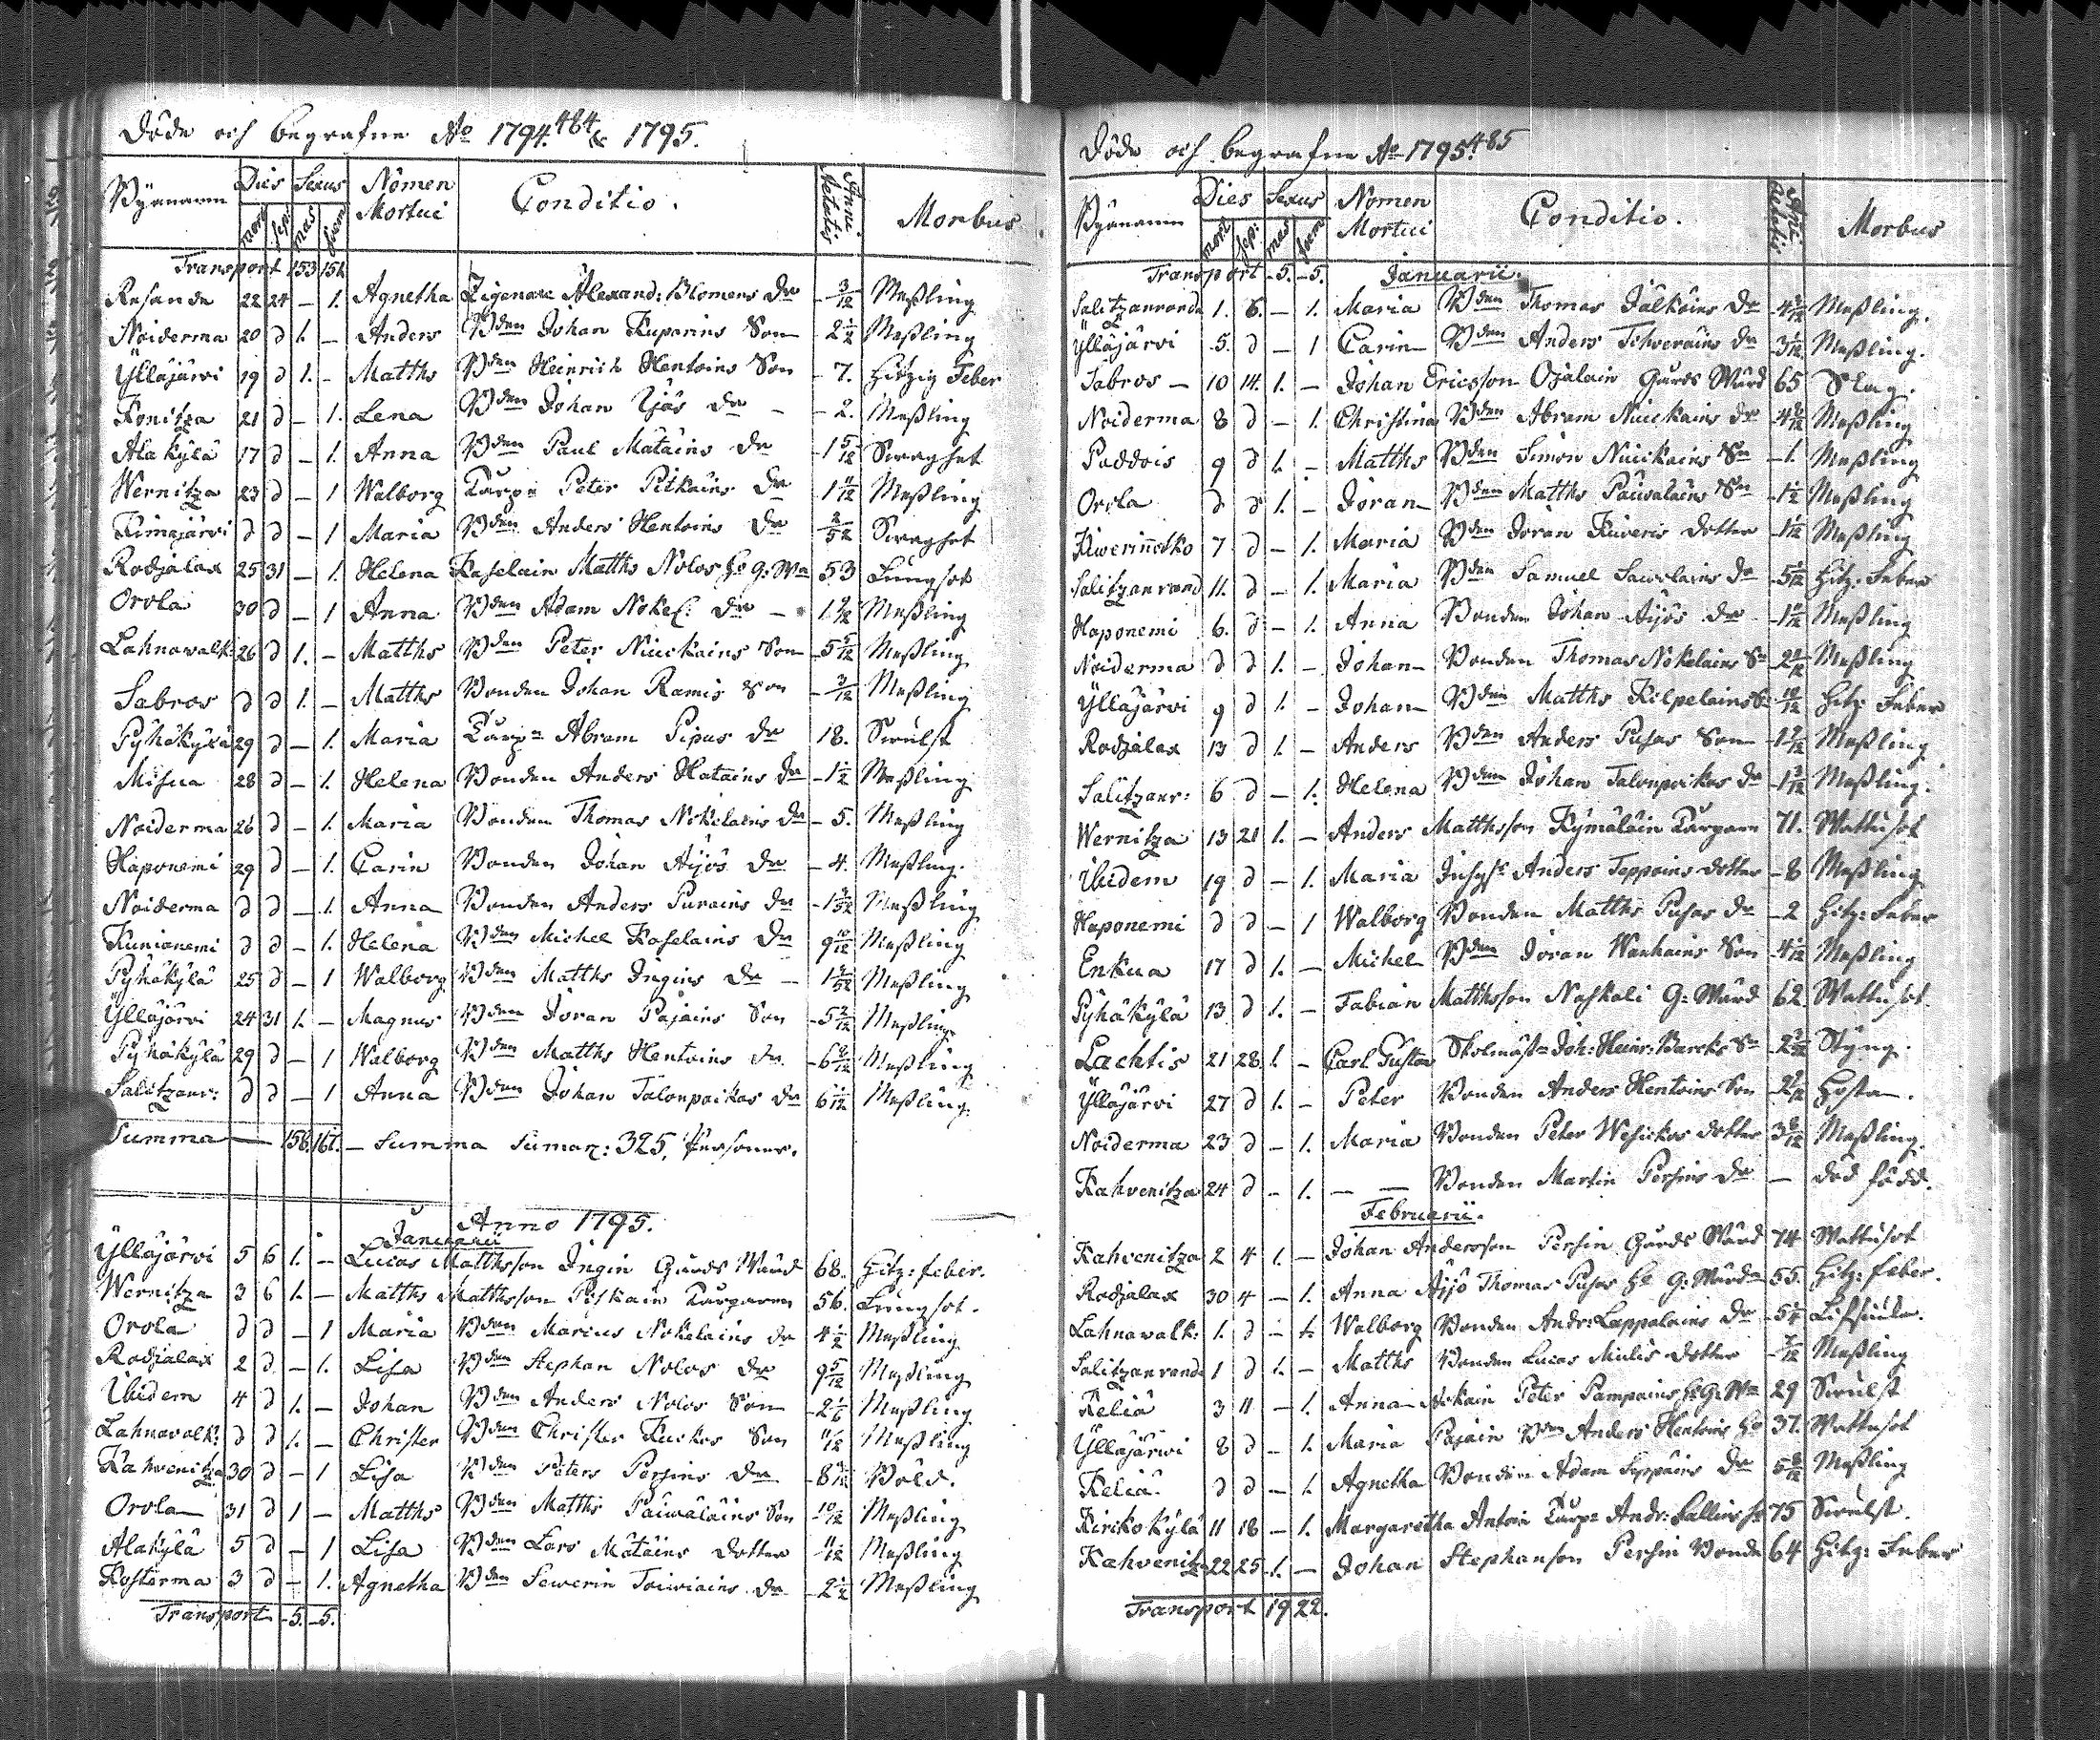 Döde och begrafne Ao 1794. & 1795.
484
Byarnamn Dies Sexus Nomen Mortui Conditio. Anni Aetatis Morbus
mort sep: mas foem
Transport 153 151
Resande 22 24 – 1. Agnetha Zigenare Alexand: Blomens dr 3/12 Meßling
Noiderma 20 d 1. – Anders Bden Johan Kuparins Son 2 1/2 Meßling
Ylläjärvi 19 d 1. – Matths Bden Heinrich Hentoins Son – 7. Hitzig Feber
Konitza 21 d – 1. Lena Bden Johan Äjös dr – 2. Meßling
Alakylä 17 d – 1. Anna Bden Paul Mätäins dr 1 5/12 Swaghet
Wernitza 23 d – 1 Walborg Torpn Peter Pitkäins dr 1 11/12 Meßling
Kimajärvi d d – 1 Maria Bden Anders Hentoins dr 2/52 Swaghet
Rodjalax 25 31 – 1. Helena Kaselain Matths Nolos h: g: Wa 53 Lungsot
Orola 30 d – 1 Anna Bden Adam Nokel: dr – Meßling
Lahnawalk: 26 d 1. – Matths Bden Peter Niuckains Son 5 Meßling
Sabros d d 1. – Matths Bonden Johan Ramis Son 3/12 Meßling
Pyhäkylä 29 d – 1. Maria Torpn Abram Pipus dr 18. Swulst
Misua 28 d – 1. Helena Bonden Anders Hatains dr 1 1/2 Meßling
Noiderma 26 d – 1. Maria Bonden Thomas Nokelains dr – 5. Meßling
Haponemi 29 d – 1. Carin Bonden Johan Äijös dr – 4. Meßling.
Noiderma d d – 1. Anna Bonden Anders Purains dr Meßling
Kunianemi d d – 1. Helena Bden Michel Kaselains dr 9 10/12 Meßling
Pyhäkylä 25 d – 1 Walborg Bden Matths Ingins dr – Meßling
Ylläjärvi 24 31 1. – Magnus Bden Jöran Pajains Son 5 Meßling
Pyhäkylä 29 d – 1 Walborg Bden Matths Hentoins dr 6 Meßling
Salitzanr: d d – 1 Anna Bden Johan Talonpoikas dr 6 Meßling.
Summa — 158. 167. – Summa Sumar: 325, Personer.
Anno 1795.
Januarii
Ylläjärvi 5 6 1. – Lucas Matthsson Ingin Gårds Wärd 68. Hitz: feber.
Wernitza 3 6 1. – Matths Matthsson Pitkäin Torparen 56. Lungsot.
Orola d d – 1 Maria Bden Marcus Nokelains dr 4 1/2 Meßling
Rodjalax 2 d – 1. Lisa Bden Stephan Nolos dr 9 5/12 Meßling
Ibidem 4 d 1. – Johan Bden Anders Nolos Son 2 1/6 Meßling
Lahnawalk: d d 1. – Christer Bden Christer Kuckos Son 11/12 Meßling
Kahvenitza 30 d – 1 Lisa Bden Peters Persins dr 8 Bold.
Orola 31 d 1 – Matths Bden Matths Päiwäläins Son 10/12 Meßling
Alakylä 5 d – 1 Lisa Bden Lars Mätäins dotter 11/12 Meßling
Kosterma 3 d – 1. Agnetha Bden Sewerin Toiwiains dr 2 1/2 Meßling
Transport 5. 5.
Döde och begrafne Ao 1795.
485
Byarnamn Dies Sexus Nomen Mortui Conditio. Anni Aetatis Morbus
mort sep: mas foem
Transport 5. 5. Januarii.
Salitzanranda 1. 6. – 1. Maria Bden Thomas Jälkäins dr 4 Meßling.
Ylläjärvi 5. d – 1 Carin Bden Anders Tchveräins dr 3 Meßling.
Sabros – 10 14. 1. – Johan Ericsson Ojalain Gårds Wärd 65 Slag.
Noiderma 8 d – 1. Christina Bden Abram Niuckains dr 4 Meßling
Paddois 9 d 1. – Matths Bden Simon Niuckains Sn – 1. Meßling
Orola d d 1. – Jöran Bden Matths Päiwäläins Sn 1 1/2 Meßling
Kiwerinnotko 7 d – 1. Maria Bden Jöran Kiiveris dotter 1 Meßling
Salitzanrand 11. d – 1. Maria Bden Samuel Sawolains dr 5 Hitz: Feber
Haponemi 6. d – 1. Anna Bonden Johan Äijös dr 1 Meßling
Noiderma d d 1. – Johan Bonden Thomas Nokelains Sn 2 Meßling
Ylläjärvi 9 d 1. – Johan Bden Matths Kilpelains Sn 10/12 Hitz Feber
Rodjalax 13 d 1. – Anders Bden Anders Pusas Son 1 Meßling
Salitzanr: 6 d – 1. Helena Bden Johan Talonpoikas dr 1 3/12 Meßling.
Wernitza 13 21 1. – Anders Matthsson Kymäläin Torparn 71. Wattusot
Ibidem 19 d – 1. Maria Inhyss Anders Teppoins dotter – 8 Meßling
Haponemi d d – 1 Walborg Bonden Matths Pusas dr – 2 Hitz: Feber
Enkua 17 d 1. – Michel Bden Jöran Wanhains Son 4 Meßling
Pyhäkylä 13 d 1. – Fabian Matthsson Naskali G: Wärd 62 Wattusot.
Lachtis 21 28. 1. – Carl Gustav Skolmästn Joh: Heinr: Barcks Sn 2 Styng.
Ylläjärvi 27 d 1. – Peter Bonden Anders Hentoins Son 2 Hosta.
Noiderma 23 d – 1. Maria Bonden Peter Wesickos dotter 3 8/12 Meßling.
Kahvenitza 24 d – 1. — — Bonden Martin Persins dr — död född.
Februarii.
Kahvenitza 2 4 1. – Johan Andersson Persin Gårds Wärd 74 Wattusot
Rodjalax 30 4 – 1. Anna Äijö Thomas Pusas h: G: Wärdn 55. Hitz: feber.
Lahnawalk: 1. d – 1. Walborg Bonden Andr: Lappalains dr 5
Salitzanranda 1 d 1. – Matths Bonden Lucas Miilis dotter Meßling
Keliä 3 11 – 1. Anna Askain Peter Pampains h: G: Wa 29 Swulst
Ylläjärwi 8 d – 1. Maria Pajain Bden Anders Hentoins h: 37. Wattusot
Keliä. d d – 1. Agnetha Bonden Adam Seppäins dr 5 8/12 Meßling
Kirikokylä 11 18 – 1. Margaretha Antoin Torpn Andr: Lallins h: 75 Swulst.
Kahvenitza 22 25 1. – Johan Stephanson Persin Bonde 64 Hitz: Feber
Transport 19 22.